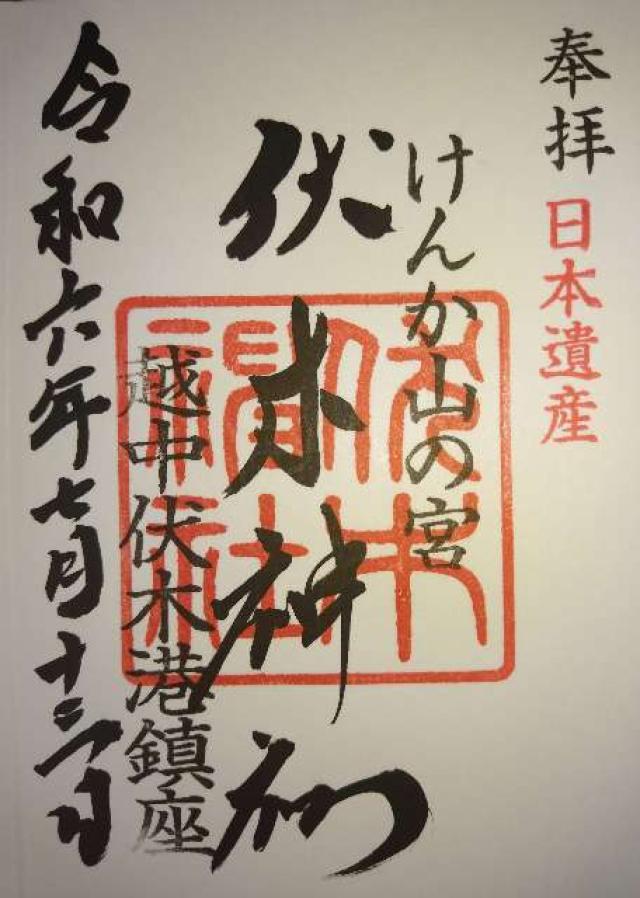 奉拝 日本遺産
けんか山の宮
伏木神社
越中伏木港鎮座
令和六年七月十三日